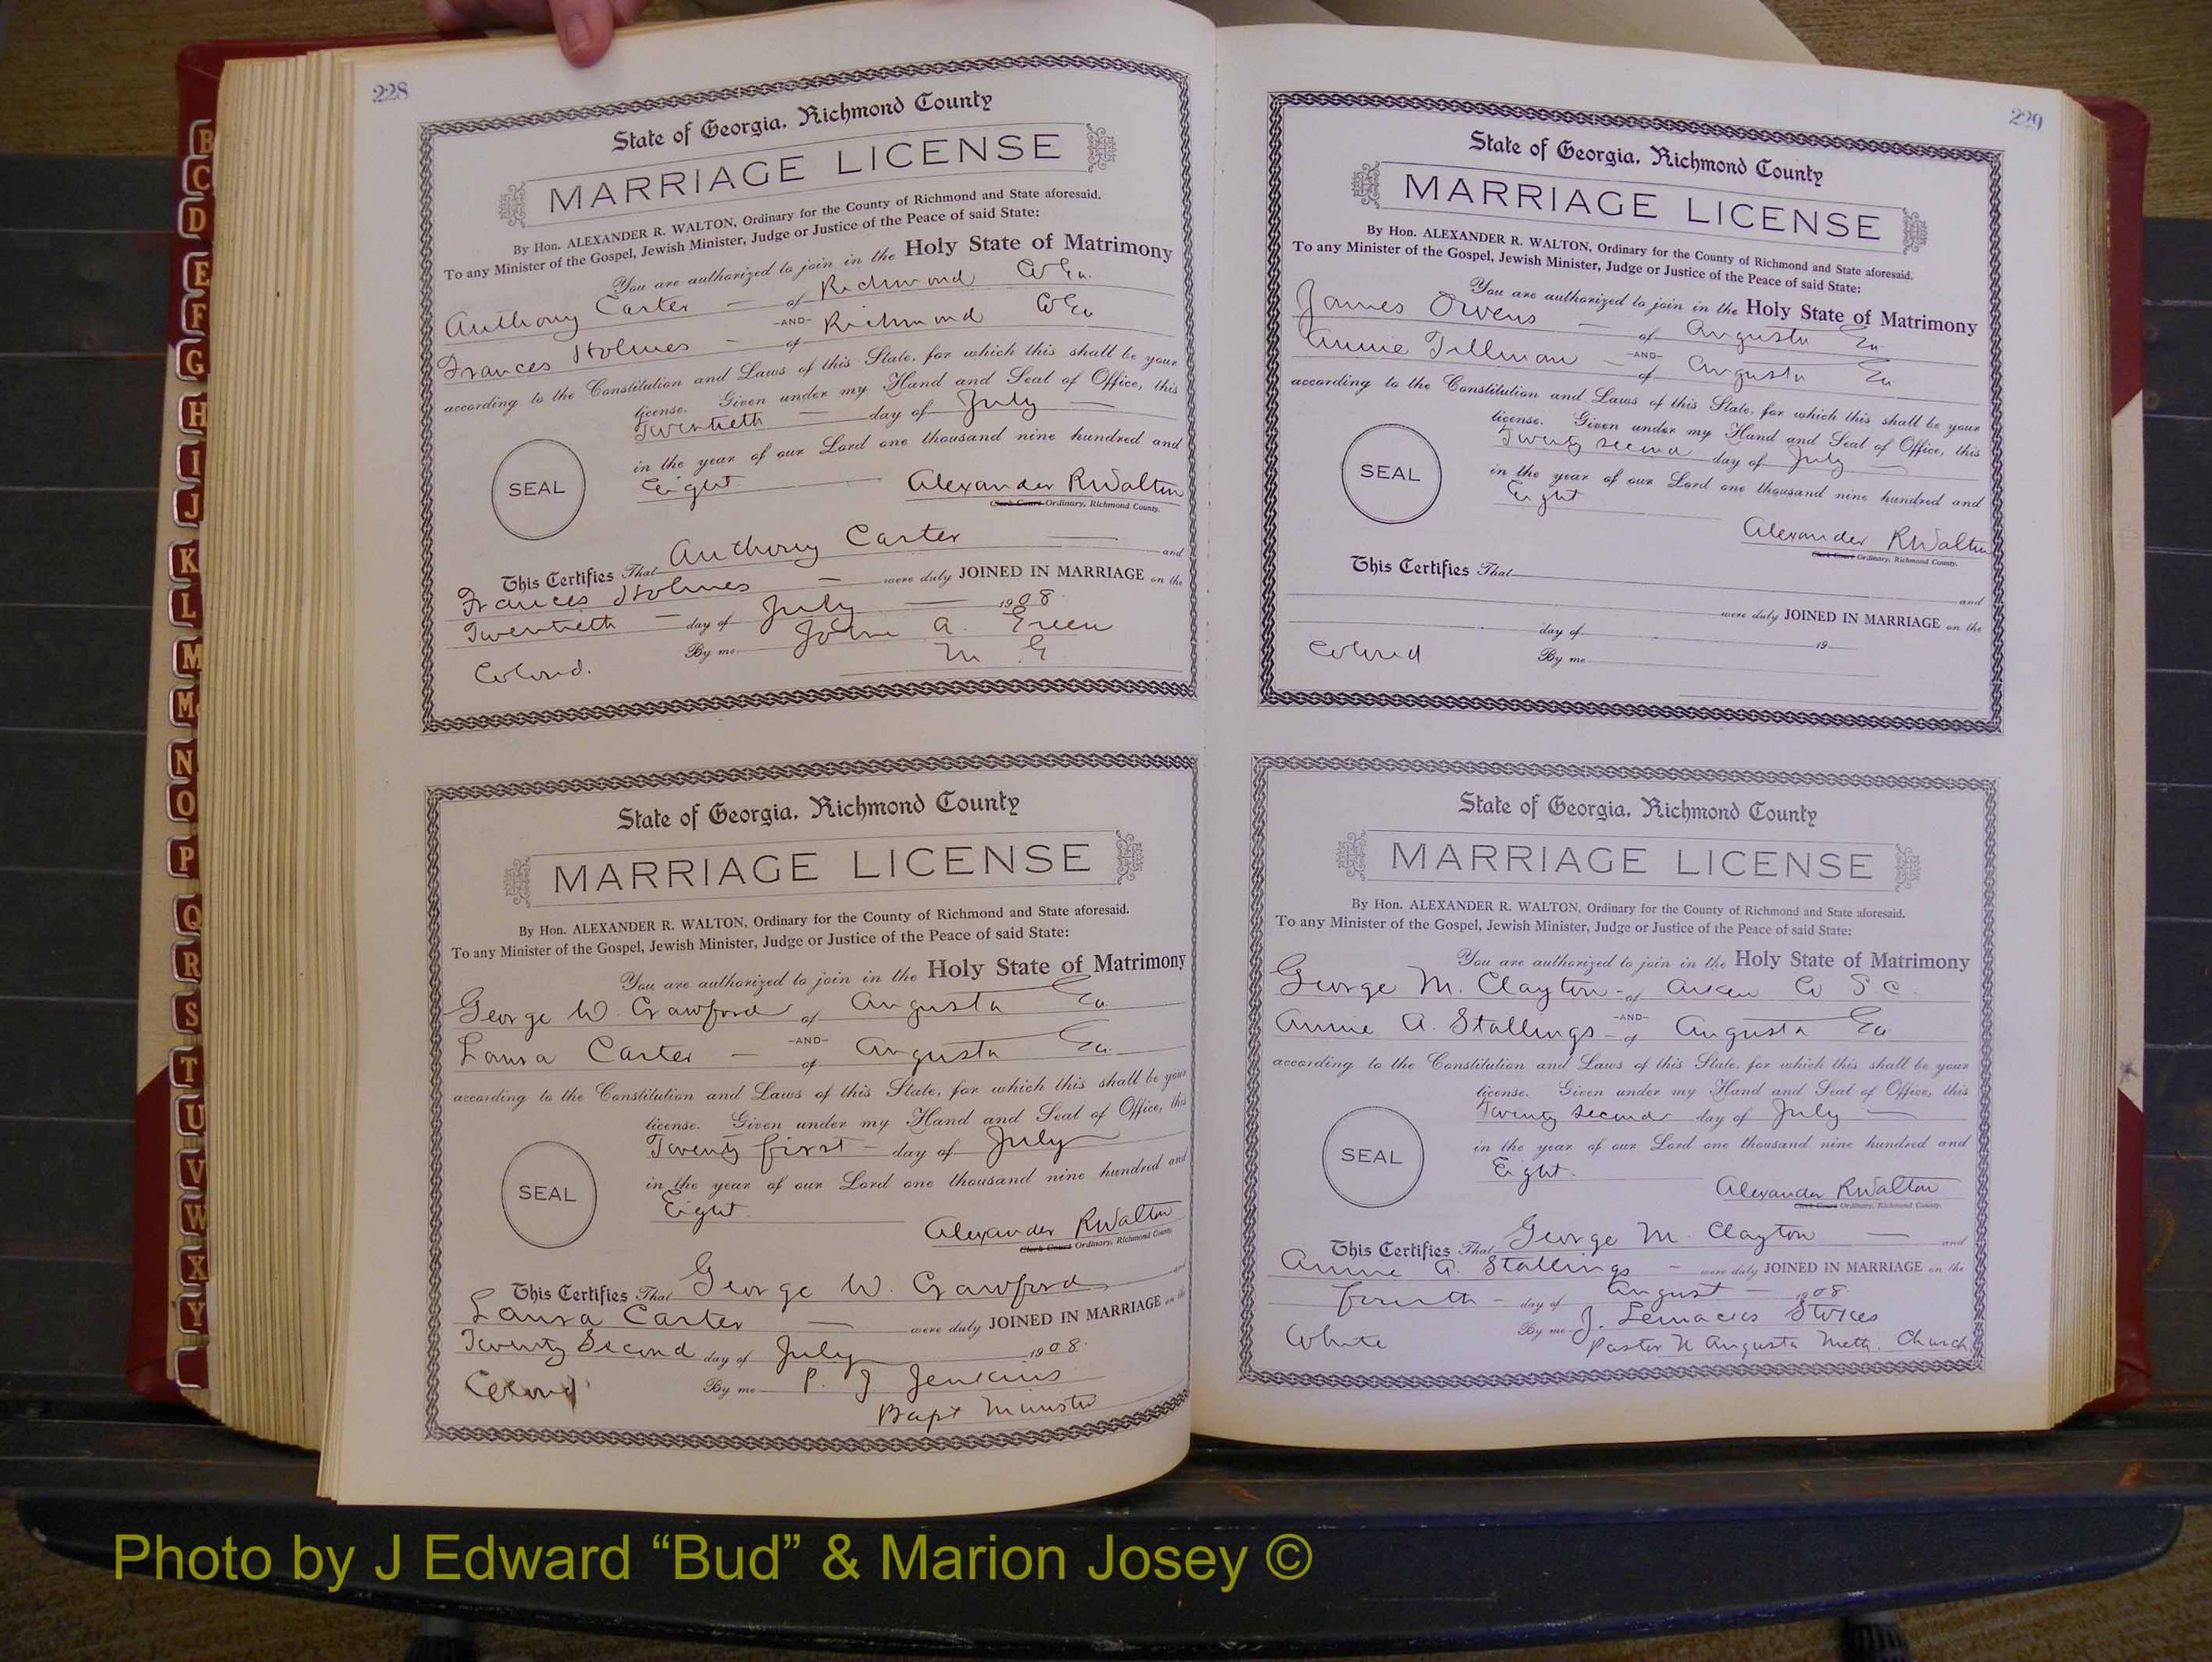 B
C
D
E
F
G
H
I
J
K
L
M
Mc
N
O
P
Q
R
S
T
U
V
W
X
Y
228
State of Georgia, Richmond County
MARRIAGE LICENSE
By Hon. ALEXANDER R. WALTON, Ordinary for the County of Richmond and State aforesaid.
To any Minister of the Gospel, Jewish Minister, Judge or Justice of the Peace of said State:
You are authorized to join in the Holy State of Matrimony
Anthony Carter — of Richmond Co Ga.
-AND-
Frances Holmes — of Richmond Co Ga
according to the Constitution and Laws of this State, for which this shall be your
license. Given under my Hand and Seal of Office, this
Twentieth — day of July —
in the year of our Lord one thousand nine hundred and
SEAL
Eight.
Alexander R Walton
Clerk Court Ordinary, Richmond County.
This Certifies That Anthony Carter — and
Frances Holmes — were duly JOINED IN MARRIAGE on the
Twentieth — day of July — 1908.
By me John A. Green
Colored. M G
State of Georgia, Richmond County
MARRIAGE LICENSE
By Hon. ALEXANDER R. WALTON, Ordinary for the County of Richmond and State aforesaid.
To any Minister of the Gospel, Jewish Minister, Judge or Justice of the Peace of said State:
You are authorized to join in the Holy State of Matrimony
George W. Crawford of Augusta Ga
-AND-
Laura Carter — of Augusta Ga.
according to the Constitution and Laws of this State, for which this shall be your
license. Given under my Hand and Seal of Office, this
Twenty first — day of July
in the year of our Lord one thousand nine hundred and
SEAL
Eight.
Alexander R Walton
Clerk Court Ordinary, Richmond County
This Certifies That George W. Crawford and
Laura Carter — were duly JOINED IN MARRIAGE on the
Twenty Second day of July 1908.
Colored By me P. J Jenkins
Bapt Minister
229
State of Georgia, Richmond County
MARRIAGE LICENSE
By Hon. ALEXANDER R. WALTON, Ordinary for the County of Richmond and State aforesaid.
To any Minister of the Gospel, Jewish Minister, Judge or Justice of the Peace of said State:
You are authorized to join in the Holy State of Matrimony
James Owens — of Augusta Ga
-AND-
Annie Tillman — of Augusta Ga
according to the Constitution and Laws of this State, for which this shall be your
license. Given under my Hand and Seal of Office, this
Twenty second day of July —
in the year of our Lord one thousand nine hundred and
SEAL
Eight
Alexander R Walton
Clerk Court Ordinary, Richmond County.
This Certifies That
and
were duly JOINED IN MARRIAGE on the
day of 19
Colored By me
State of Georgia, Richmond County
MARRIAGE LICENSE
By Hon. ALEXANDER R. WALTON, Ordinary for the County of Richmond and State aforesaid.
To any Minister of the Gospel, Jewish Minister, Judge or Justice of the Peace of said State:
You are authorized to join in the Holy State of Matrimony
George M. Clayton - of Aiken Co S C.
-AND-
Annie A. Stallings - of Augusta Ga
according to the Constitution and Laws of this State, for which this shall be your
license. Given under my Hand and Seal of Office, this
Twenty second day of July —
in the year of our Lord one thousand nine hundred and
SEAL
Eight.
Alexander R Walton
Clerk Court Ordinary, Richmond County.
This Certifies That George M. Clayton — and
Annie A. Stallings — were duly JOINED IN MARRIAGE on the
fourth — day of August — 1908
By me J. Stokes
White Pastor N Augusta Meth. Church
Photo by J Edward “Bud” & Marion Josey ©